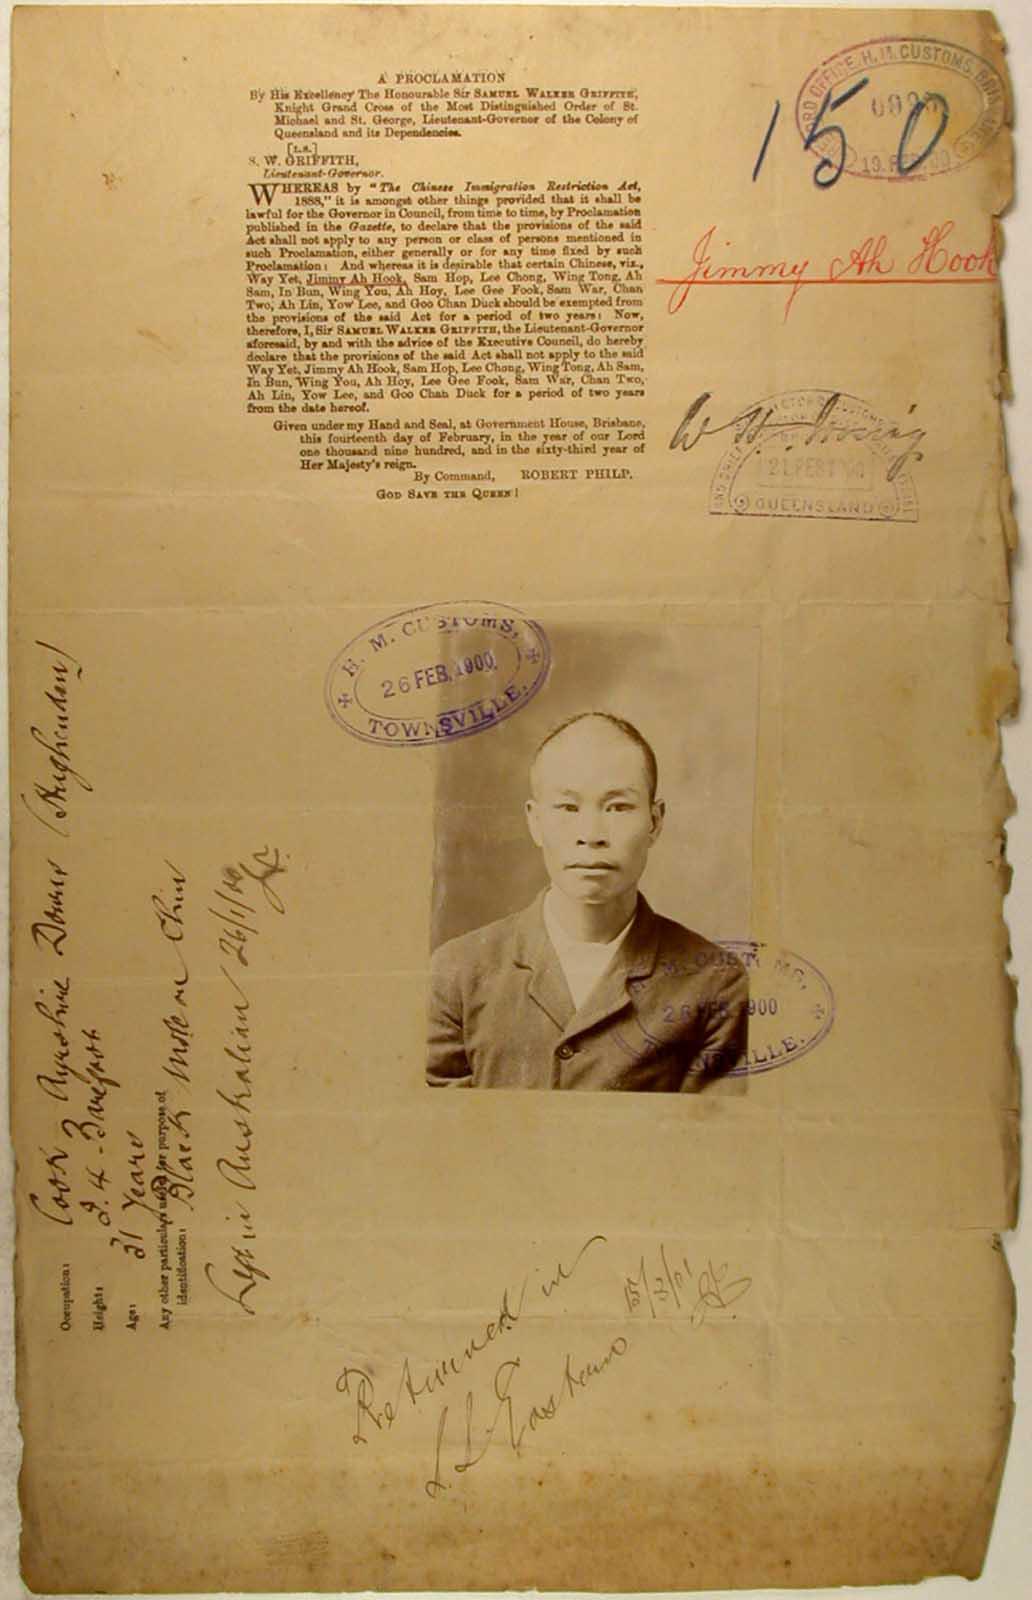 A PROCLAMATION
By His Excellency The Honourable Sir SAMUEL WALKER GRIFFITH,
Knight Grand Cross of the Most Distinguished Order of St.
Michael and St. George, Lieutenant-Governor of the Colony of
Queensland and its Dependencies.
[L.S.]
S. W. GRIFFITH,
Lieutenant-Governor.
WHEREAS by "The Chinese Immigration Restriction Act,
1888," it is amongst other things provided that it shall be
lawful for the Governor in Council, from time to time, by Proclamation
published in the Gazette, to declare that the provisions of the said
Act shall not apply to any person or class of persons mentioned in
such Proclamation, either generally or for any time fixed by such
Proclamation: And whereas it is desirable that certain Chinese, viz.,
Way Yet, Jimmy Ah Hook, Sam Hop, Lee Chong, Wing Tong, Ah
Sam, In Bun, Wing You, Ah Hoy, Lee Gee Fook, Sam War, Chan
Two, Ah Lin, Yow Lee, and Goo Chan Duck should be exempted from
the provisions of the said Act for a period of two years: Now,
therefore, I, Sir SAMUEL WALKER GRIFFITH, the Lieutenant-Governor
aforesaid, by and with the advice of the Executive Council, do hereby
declare that the provisions of the said Act shall not apply to the said
Way Yet, Jimmy Ah Hook, Sam Hop, Lee Chong, Wing Tong, Ah Sam,
In Bun, Wing You, Ah Hoy, Lee Gee Fook, Sam War, Chan Two,
Ah Lin, Yow Lee, and Goo Chan Duck for a period of two years
from the date hereof.
Given under my Hand and Seal, at Government House, Brisbane,
this fourteenth day of February, in the year of our Lord
one thousand nine hundred, and in the sixty-third year of
Her Majesty's reign.
By Command, ROBERT PHILP.
GOD SAVE THE QUEEN!
RECORD OFFICE, H. M. CUSTOMS, BRISBANE
19. FEB. 00
150
Jimmy Ah Hook
W H
21 FEB 00
QUEENSLAND
H. M. CUSTOMS,
26 FEB. 1900
TOWNSVILLE.
H. M. CUSTOMS,
26 FEB. 1900
TOWNSVILLE.
Occupation: Cook Ayrshire Downs (Hughenden)
Height: 5.4 - Barefoot
Age: 31 Years
Any other particulars used for purpose of
identification: Black mole on Chin
Left in Australian 26/1/00
Returned in
S.S. Eastern